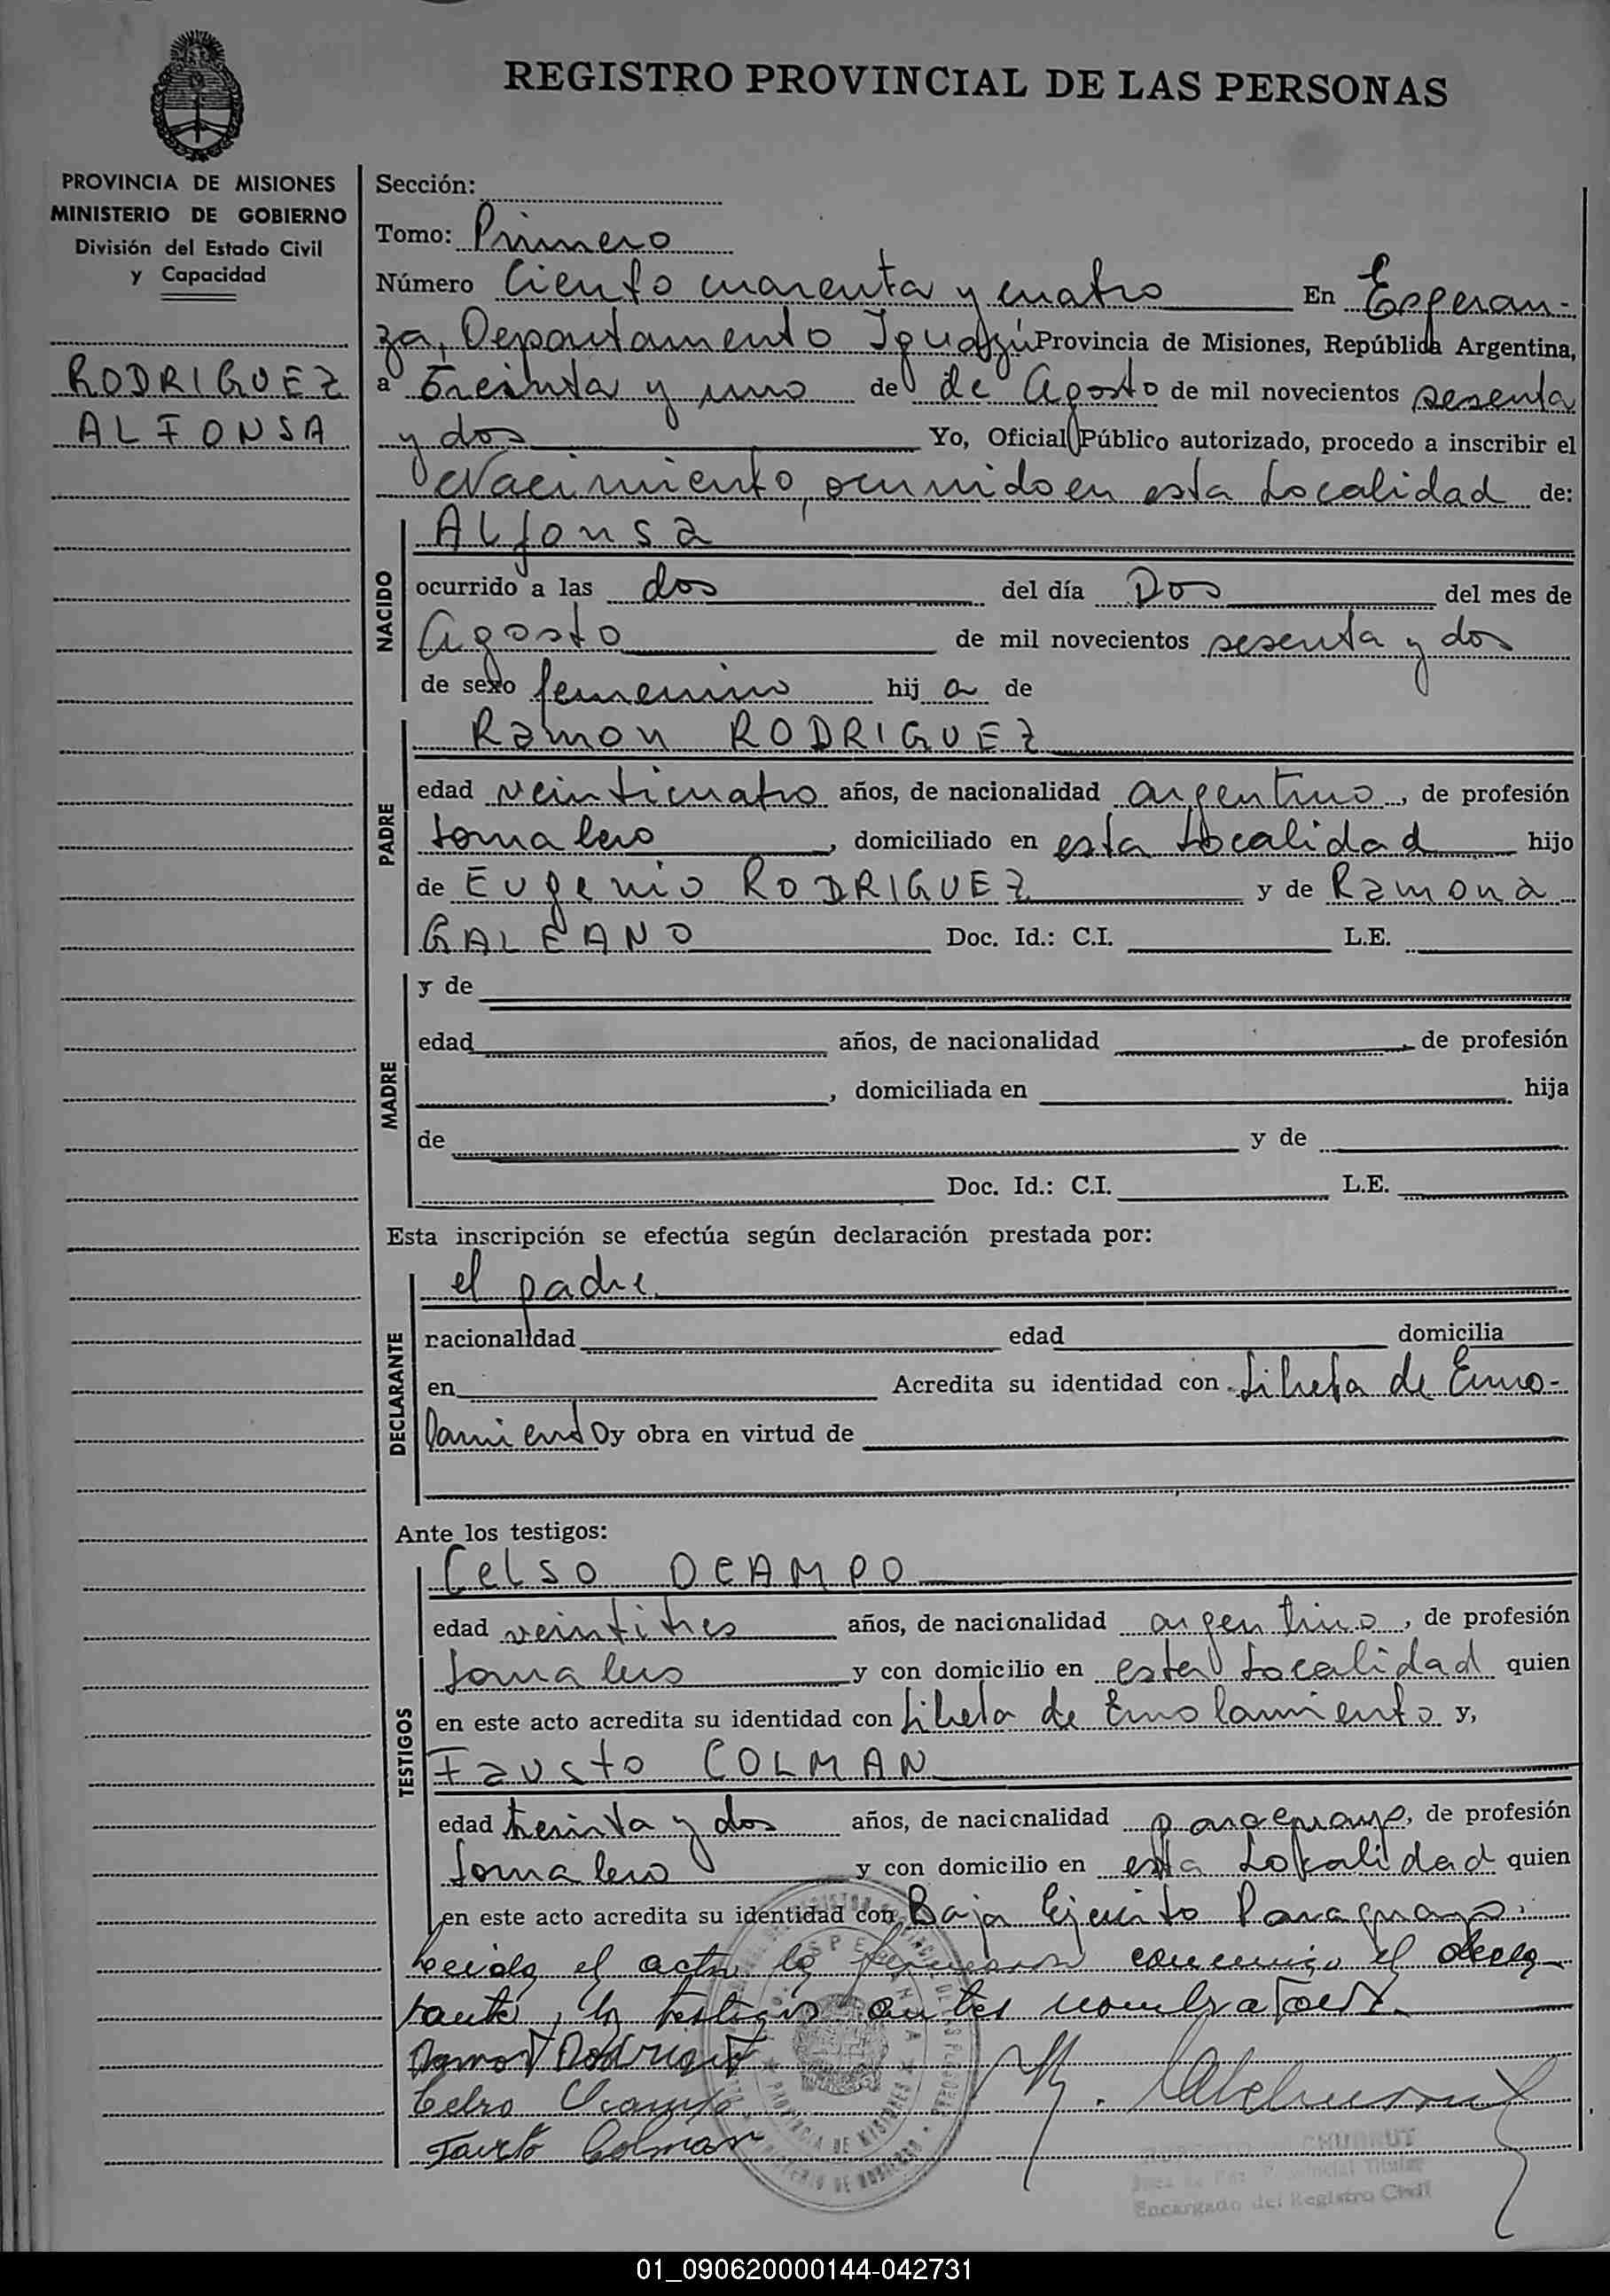 REGISTRO PROVINCIAL DE LAS PERSONAS
PROVINCIA DE MISIONES
MINISTERIO DE GOBIERNO
División del Estado Civil
y Capacidad
RODRIGUEZ
ALFONSA
Sección:
Tomo: Primero
Número Ciento cuarenta y cuatro En Esperan-
za, Departamento Iguazú Provincia de Misiones, República Argentina,
a treinta y uno de de Agosto de mil novecientos sesenta
y dos Yo, Oficial Público autorizado, procedo a inscribir el
Nacimiento, ocurrido en esta Localidad de:
NACIDO
Alfonsa
ocurrido a las dos del día Dos del mes de
Agosto de mil novecientos sesenta y dos
de sexo femenino hij a de
PADRE
Ramon RODRIGUEZ
edad veinticuatro años, de nacionalidad argentino, de profesión
Jornalero, domiciliado en esta Localidad hijo
de Eugenio RODRIGUEZ y de Ramona
GALEANO Doc. Id.: C.I. L.E.
MADRE
y de
edad años, de nacionalidad, de profesión
, domiciliada en hija
de y de
Doc. Id.: C.I. L.E.
Esta inscripción se efectúa según declaración prestada por:
DECLARANTE
el padre
racionalidad edad domicilia
en Acredita su identidad con Libreta de Enro-
lamiento y obra en virtud de
Ante los testigos:
TESTIGOS
Celso OCAMPO
edad veintitres años, de nacionalidad argentino, de profesión
Jornalero y con domicilio en esta Localidad quien
en este acto acredita su identidad con Libreta de Enrolamiento y,
Fausto COLMAN
edad treinta y dos años, de nacionalidad paraguayo, de profesión
Jornalero y con domicilio en esta Localidad quien
en este acto acredita su identidad con Baja Ejercito Paraguayo.
Leida el acta la firmaron conmigo el decla
rante, los testigos antes nombrados.
Ramon Rodriguez
Celso Ocampo
Fausto Colman
PROVINCIA DE MISIONES
Encargado del Registro Civil
01_090620000144-042731